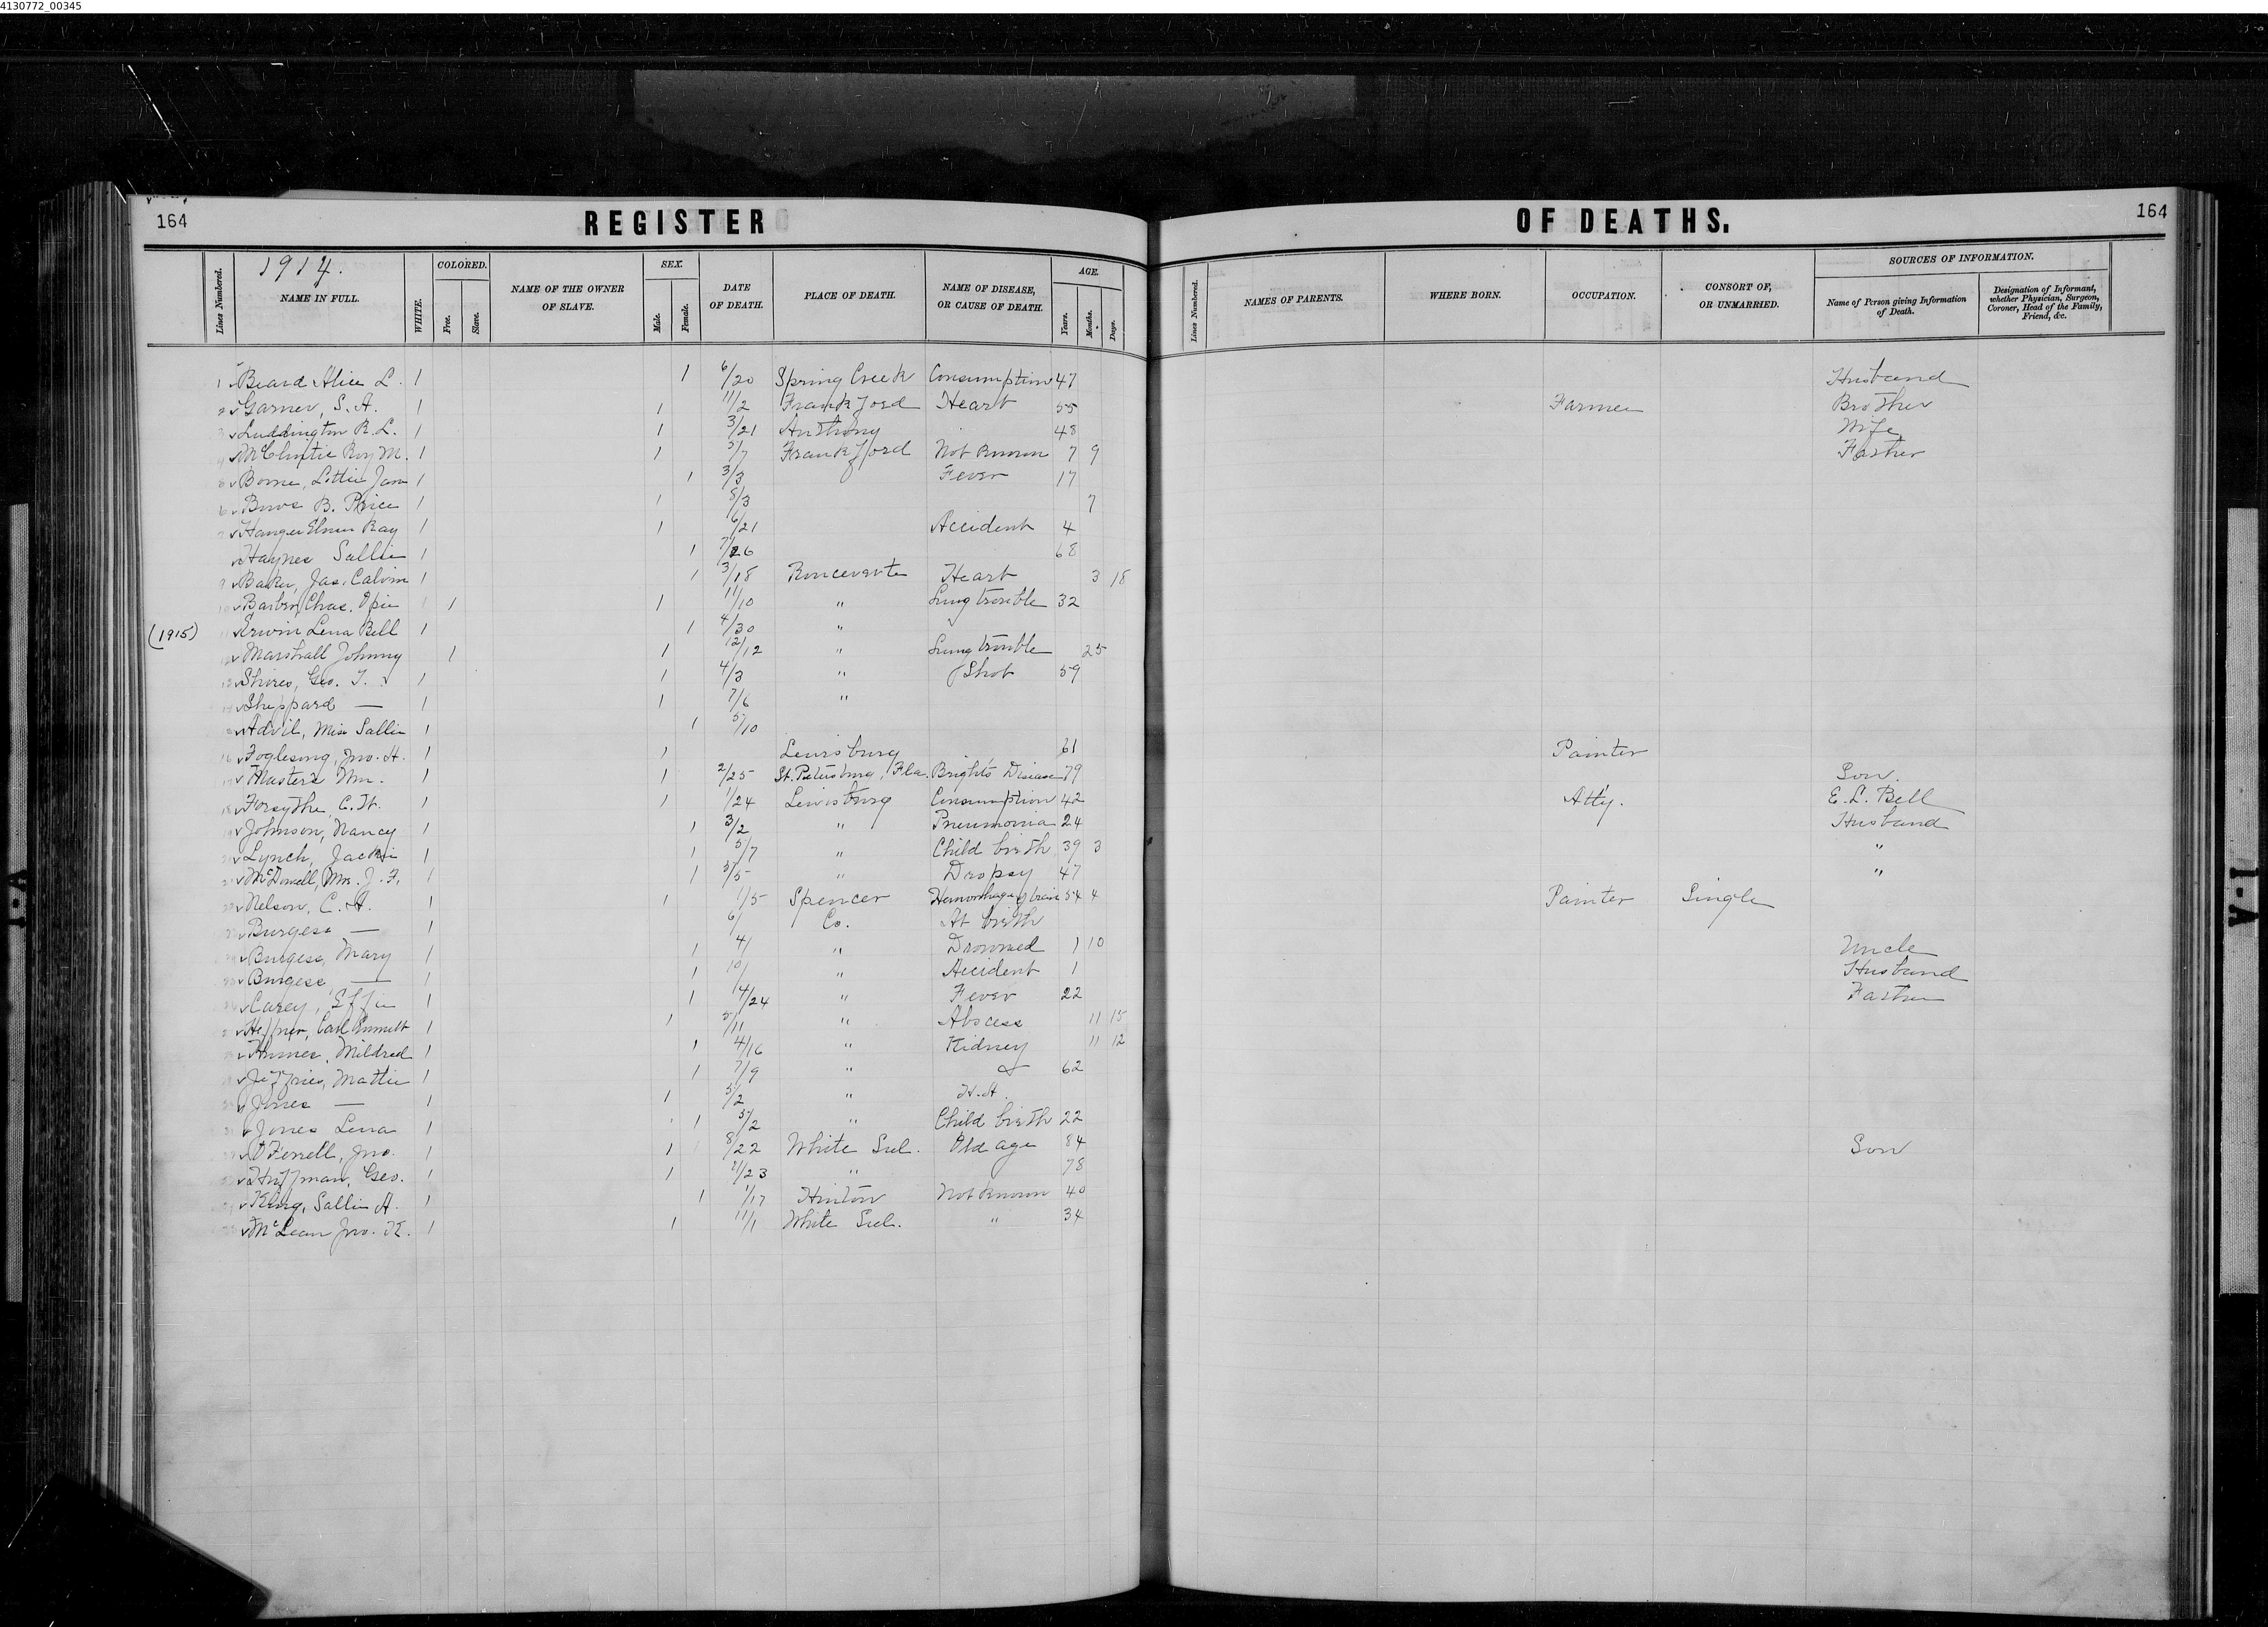 4130772_00345
164 REGISTER OF DEATHS. 164
1914.
Lines Numbered. NAME IN FULL. WHITE. COLORED. Free. Slave. NAME OF THE OWNER OF SLAVE. SEX. Male. Female. DATE OF DEATH. PLACE OF DEATH. NAME OF DISEASE, OR CAUSE OF DEATH. AGE. Years. Months. Days.
Lines Numbered. NAMES OF PARENTS. WHERE BORN. OCCUPATION. CONSORT OF, OR UNMARRIED. SOURCES OF INFORMATION. Name of Person giving Information of Death. Designation of Informant, whether Physician, Surgeon, Coroner, Head of the Family, Friend, &c.
1 Beard Alice L. 1 1 6/20 Spring Creek Consumption 47 Husband
2 Garner, S. A. 1 1 11/2 Frankford Heart 55 Farmer Brother
Luddington R. L. 1 1 3/21 Anthony 48 Wife
McClintic Roy M. 1 1 3/7 Frankford Not Known 7 9 Father
Bowe, Lottie Jam 1 1 3/3 Fever 17
6 B. Price 1 1 8/3 7
Hanger Elmer Ray 1 1 6/21 Accident 4
Haynes Sallie 1 1 7/26 68
9 Baker, Jas. Calvin 1 1 3/18 Ronceverte Heart 3 18
Barber Chas. Opie 1 1 11/10 " Lung trouble 32
(1915) Erwin Lena Bell 1 1 4/30 "
Marshall Johnny 1 1 12/12 " Lung trouble 25
Shires, Geo. T. 1 1 4/3 " Shot 59
Sheppard — 1 1 7/6 "
Advil, Miss Sallie 1 1 5/10
16 Foglesong, Jno. H. 1 1 Lewisburg 61 Painter
Masters Wm. 1 1 2/25 St. Petersburg, Fla. Bright's Disease 79 Son.
Forsythe, C. W. 1 1 1/24 Lewisburg Consumption 42 Atty. E. L. Bell
Johnson, Nancy 1 1 3/2 " Pneumonia 24 Husband
Lynch, Jackie 1 1 5/7 " Child birth 39 3 "
McDowell, Mrs. J. F. 1 1 3/5 " Dropsy 47 "
Nelson, C. A. 1 1 1/5 Spencer Hemorrhage of brain 54 4 Painter Single
Burgess — 1 6/ Co. At birth
Burgess, Mary 1 1 4/ " Drowned 1 10 Uncle
Burgess, — 1 1 10/ " Accident 1 Husband
Carey, Effie 1 1 4/24 " Fever 22 Father
Hepner, Carl Emmett 1 1 5/11 " Abscess 11 15
Humes, Mildred 1 1 4/16 " Kidney 11 12
Jeffries, Mattie 1 1 7/9 " 62
Jones — 1 1 5/2 "
Jones Lena 1 1 5/2 " Child birth 22
O'Ferrell, Jno. 1 1 8/22 White Sul. Old age 84 Son
Huffman, Geo. 1 1 11/23 " 78
King, Sallie A. 1 1 1/17 Hinton Not Known 40
McLean Jno. K. 1 1 11/1 White Sul. " 34